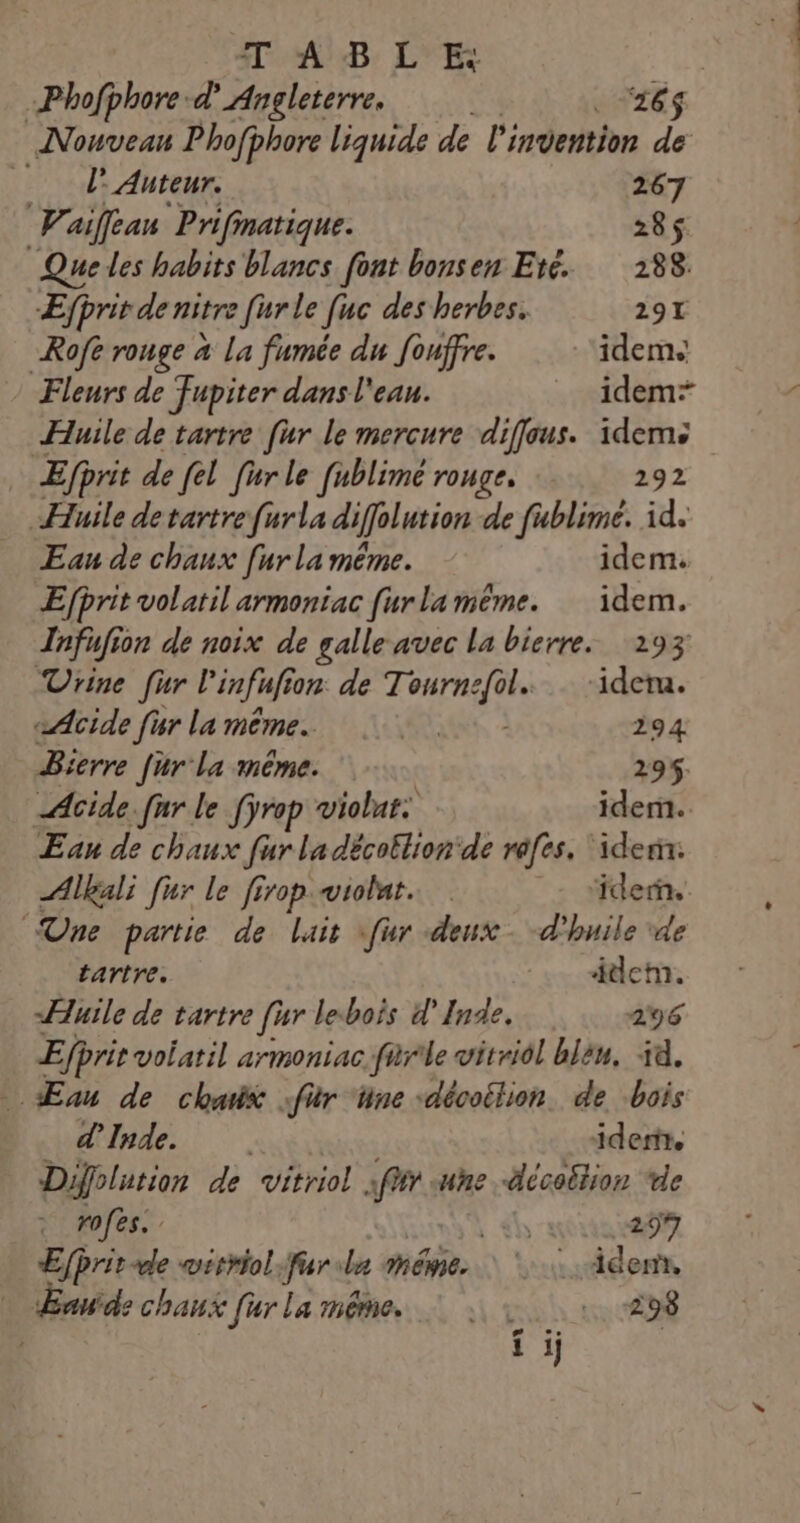 TABLE.
Phoſphore d'Angleterre. 265
Nouveau Phoſphore liquide de l'invention de
l'Auteur. 267
Vaiſſeau Priſmatique. 285
Que les habits blancs ſont bons en Eté. 288
Eſprit de nitre ſur le ſuc des herbes. 291
Roſe rouge à la fumée du ſouffre. idem.
Fleurs de Jupiter dans l'eau. idem.
Huile de tartre ſur le mercure diſſous. idem.
Eſprit de ſel ſur le ſublimé rouge. 292
Huile de tartre ſur la diſſolution de ſublimé. id.
Eau de chaux ſur la même. idem.
Eſprit volatil armoniac ſur la même. idem.
Infuſion de noix de galle avec la bierre. 293
Urine ſur l'infuſion de Tourneſol. idem.
Acide ſur la même. 294
Bierre ſur la même. 295
Acide ſur le ſyrop violat. idem.
Eau de chaux ſur la décoction de roſes. idem.
Alkali ſur le ſirop violat. idem.
Une partie de lait ſur deux d'huile de
tartre. idem.
Huile de tartre ſur le bois d'Inde. 296
Eſprit volatil armoniac ſur le vitriol bleu. id.
Eau de chaux ſur une décoction de bois
d'Inde. idem.
Diſſolution de vitriol ſur une décoction de
roſes. 297
Eſprit de vitriol ſur la même. idem.
Eau de chaux ſur la même. 298
í ij